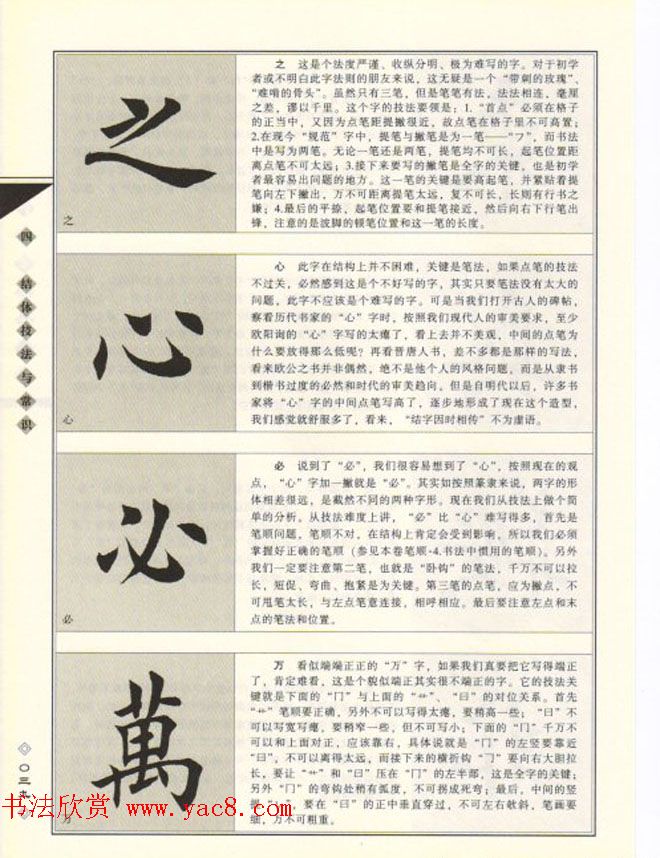 四
结体技法与常识
之 这是个法度严谨、收纵分明、极为难写的字。对于初学
者或不明白此字法则的朋友来说，这无疑是一个“带刺的玫瑰”、
“难啃的骨头”。虽然只有三笔，但是笔笔有法，法法相连，毫厘
之差，谬以千里。这个字的技法要领是；1.“首点”必须在格子
的正当中，又因为点笔距提撇很近，故点笔在格子里不可高置；
2.在现今“规范”字中，提笔与撇笔是为一笔——“フ”，而书法
中是写为两笔。无论一笔还是两笔，提笔均不可长，起笔位置距
离点笔不可太远；3.接下来要写的撇笔是全字的关键，也是初学
者最容易出问题的地方。这一笔的关键是要高起笔，并紧贴着提
笔向左下撇出，万不可距离提笔太远，复不可长，长则有行书之
嫌；4.最后的平捺，起笔位置要和提笔接近，然后向右下行笔出
锋，注意的是波脚的顿笔位置和这一笔的长度。
之
之
心 此字在结构上并不困难，关键是笔法，如果点笔的技法
不过关，必然感到这是个不好写的字，其实只要笔法没有太大的
问题，此字不应该是个难写的字。可是当我们打开古人的碑帖，
察看历代书家的“心”字时，按照我们现代人的审美要求，至少
欧阳询的“心”字写的太瘪了，看上去并不美观，中间的点笔为
什么要放得那么低呢？再看晋唐人书，差不多都是那样的写法，
看来欧公之书并非偶然，绝不是他个人的风格问题，而是从隶书
到楷书过度的必然和时代的审美趋向。但是自明代以后，许多书
家将“心”字的中间点笔写高了，逐步地形成了现在这个造型，
我们感觉就舒服多了，看来，“结字因时相传”不为虚语。
心
心
必 说到了“必”，我们很容易想到了“心”，按照现在的观
点，“心”字加一撇就是“必”。其实如按照篆隶来说，两字的形
体相差很远，是截然不同的两种字形。现在我们从技法上做个简
单的分析。从技法难度上讲，“必”比“心”难写得多，首先是
笔顺问题，笔顺不对，在结构上肯定会受到影响，所以我们必须
掌握好正确的笔顺（参见本卷笔顺·4.书法中惯用的笔顺）。另外
我们一定要注意第二笔，也就是“卧钩”的笔法，千万不可以拉
长，短促、弯曲、抱紧是为关键。第三笔的点笔，应为撇点，不
可甩笔太长，与左点笔意连接，相呼相应。最后要注意左点和末
点的笔法和位置。
必
必
万 看似端端正正的“万”字，如果我们真要把它写得端正
了，肯定难看，这是个貌似端正其实很不端正的字。它的技法关
键就是下面的“冂”与上面的“艹”、“曰”的对位关系。首先
“艹”笔顺要正确，另外不可以写得太瘪，要稍高一些；“曰”不
可以写宽写瘪，要稍窄一些，但不可写小；下面的“冂”千万不
可以和上面对正，应该靠右，具体说就是“冂”的左竖要靠近
“曰”，不可以离得太远，而接下来的横折钩“㇆”要向右大胆拉
长，要让“艹”和“曰”压在“冂”的左半部，这是全字的关键；
另外“冂”的弯钩处稍有弧度，不可拐成死弯；最后，中间的竖
要在“曰”的正中垂直穿过，不可左右欹斜，笔画要
细，万不可粗重。
萬
万
书法欣赏 www.yac8.com